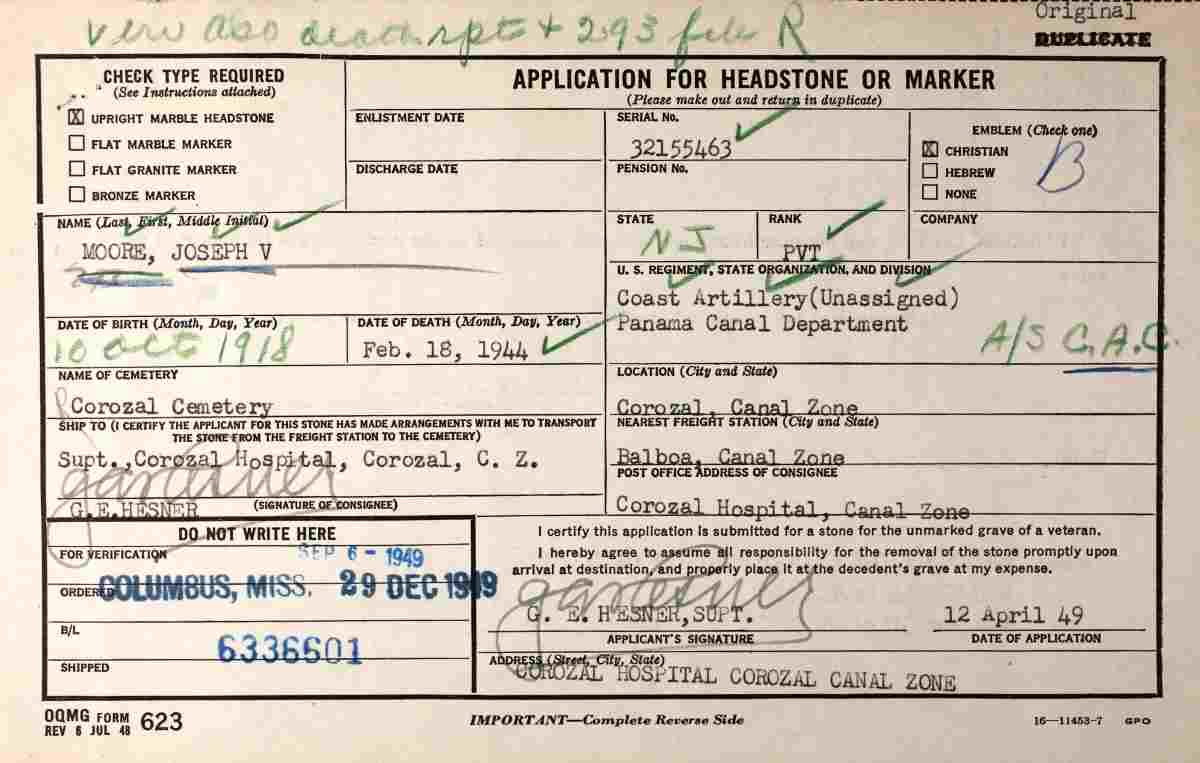 veri also death rpt + 293 file R
Original
DUPLICATE
CHECK TYPE REQUIRED
(See Instructions attached)
X UPRIGHT MARBLE HEADSTONE
FLAT MARBLE MARKER
FLAT GRANITE MARKER
BRONZE MARKER
APPLICATION FOR HEADSTONE OR MARKER
(Please make out and return in duplicate)
ENLISTMENT DATE
DISCHARGE DATE
SERIAL No.
32155463
PENSION No.
EMBLEM (Check one)
X CHRISTIAN
HEBREW
NONE
B
NAME (Last, First, Middle Initial)
MOORE, JOSEPH V
STATE
NJ
RANK
PVT
COMPANY
U. S. REGIMENT, STATE ORGANIZATION, AND DIVISION
Coast Artillery(Unassigned)
Panama Canal Department
A/S C.A.C.
DATE OF BIRTH (Month, Day, Year)
10 Oct 1918
DATE OF DEATH (Month, Day, Year)
Feb. 18, 1944
NAME OF CEMETERY
Corozal Cemetery
LOCATION (City and State)
Corozal, Canal Zone
SHIP TO (I CERTIFY THE APPLICANT FOR THIS STONE HAS MADE ARRANGEMENTS WITH ME TO TRANSPORT
THE STONE FROM THE FREIGHT STATION TO THE CEMETERY)
Supt.,Corozal Hospital, Corozal, C. Z.
NEAREST FREIGHT STATION (City and State)
Balboa, Canal Zone
POST OFFICE ADDRESS OF CONSIGNEE
Corozal Hospital, Canal Zone
G.E.HESNER
(SIGNATURE OF CONSIGNEE)
DO NOT WRITE HERE
FOR VERIFICATION
SEP 6 - 1949
ORDERED
COLUMBUS, MISS. 29 DEC 1949
B/L
6336601
SHIPPED
I certify this application is submitted for a stone for the unmarked grave of a veteran.
I hereby agree to assume all responsibility for the removal of the stone promptly upon
arrival at destination, and properly place it at the decedent's grave at my expense.
G. E. HESNER, SUPT.
12 April 49
APPLICANT'S SIGNATURE
DATE OF APPLICATION
ADDRESS (Street, City, State)
COROZAL HOSPITAL COROZAL CANAL ZONE
OQMG FORM 623
REV 6 JUL 48
IMPORTANT—Complete Reverse Side
16—11453-7 GPO